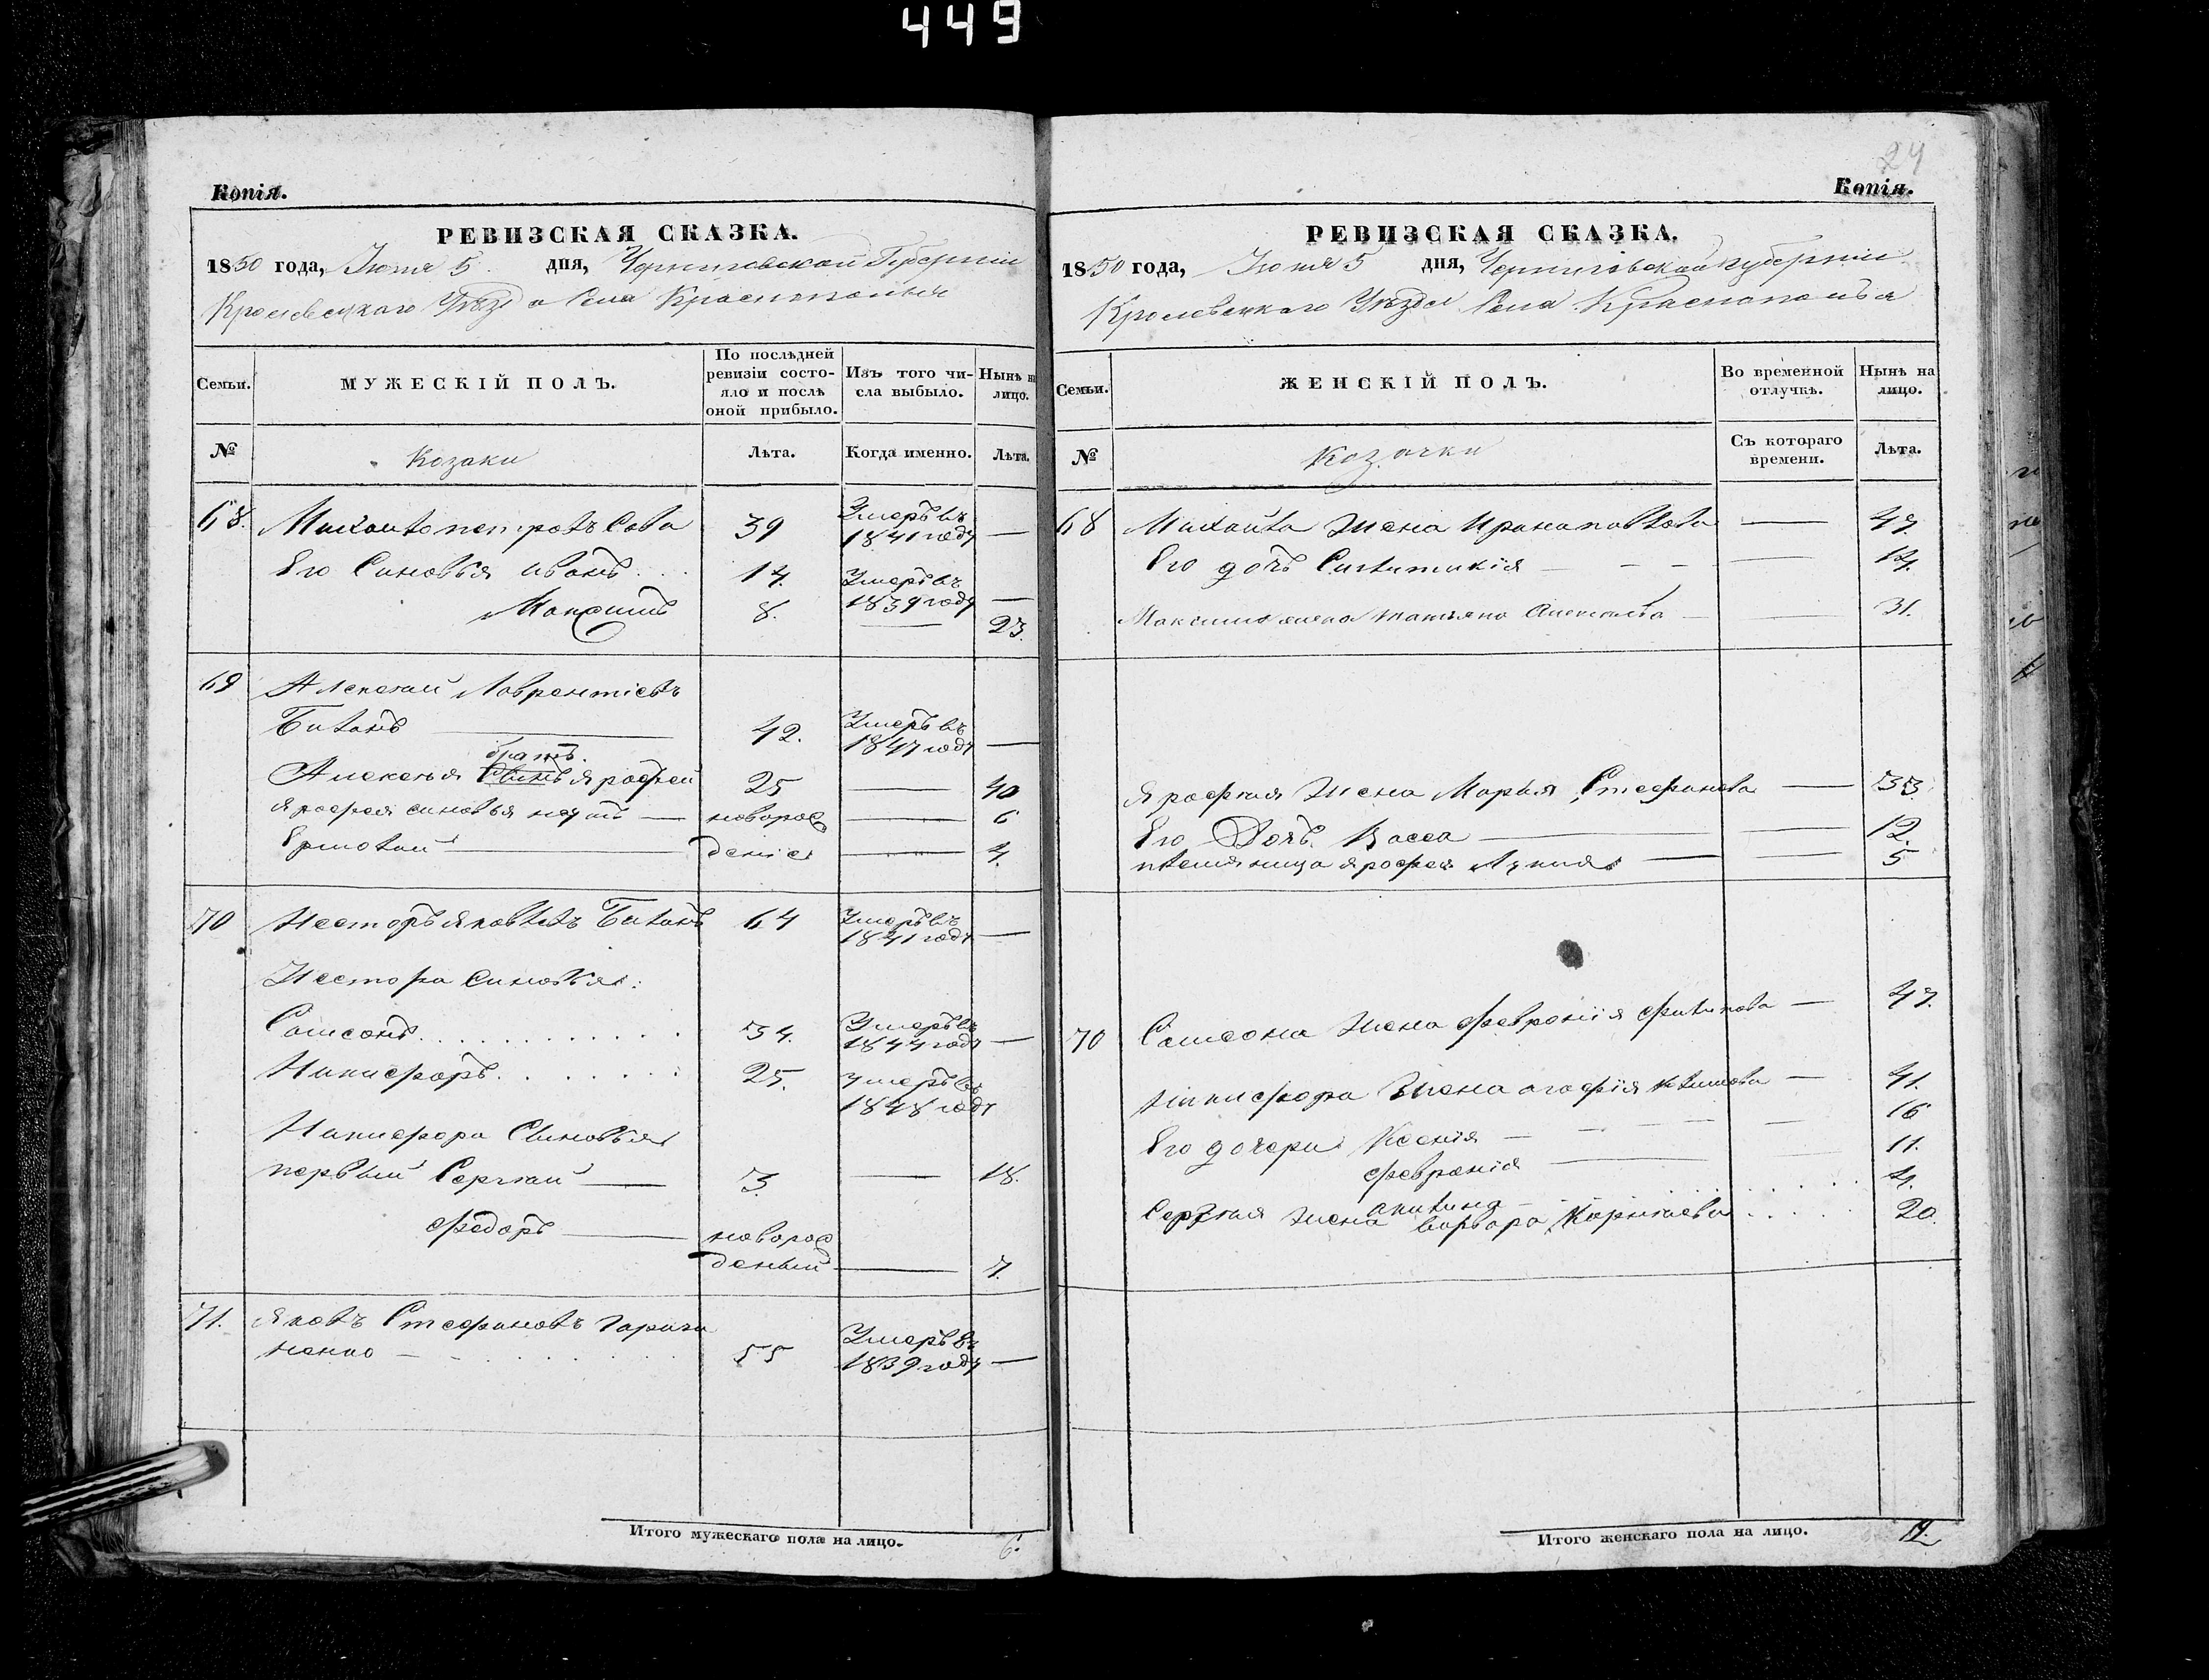 449
Копія.
РЕВИЗСКАЯ СКАЗКА.
1850 года, Іюня 5 дня, Черниговской Губерніи
Кролевецкаго Уѣзда Села Краснополья
Семьи.
МУЖЕСКІЙ ПОЛЪ.
По послѣдней ревизіи состо-
яло и послѣ оной прибыло.
Изъ того чи-
сла выбыло.
Нынѣ на лицо.
№
Козаки
Лѣта.
Когда именно.
Лѣта.
68. Михайло петровъ Сова 39 Умеръ въ 1841 году —
Его Синовья иванъ . . . 14. Умеръ въ 1839 году —
Максимъ 8. — 23.
69 Алексей Лаврентіевъ
Биланъ — 42. Умеръ въ 1847 году —
братъ.
Алексея Синъ ярофей 25 — 40
ярофея синовья — новорож — 6
Ермолай — деніе — 4.
70 Несторъ яковлевъ Биланъ 64 Умеръ въ 1841 году —
Нестора Синовья:
Самсонъ . . . 34. Умеръ въ 1844 году —
Никифоръ . . . 25. Умеръ въ 1848 году
Никифора Синовья
первый Сергей — 3. — 18.
федоръ — новорож
деный — 7.
71. яковъ Стефановъ
ненко — 55 Умеръ въ 1839 году —
Итого мужескаго пола на лицо. 6.
24
Копія.
РЕВИЗСКАЯ СКАЗКА.
1850 года, Іюня 5 дня, Черниговской губерніи
Кролевецкаго Уѣзда Села Краснополья
Семьи.
ЖЕНСКІЙ ПОЛЪ.
Во временной отлучкѣ.
Нынѣ на лицо.
№
Козачки
Съ котораго времени.
Лѣта.
68 Михайла Жена Ирина павлова — 47.
Его дочъ — — — 14.
Максима жена татьяна — — 31.
ярофея Жена Марья Стефанова — 33.
Его Дочъ Васса — — 12.
племяница ярофея — — 5
70 Самсона Жена феврония филипова — 47.
Никифора Жена агафія климова — 41.
Его дочери Ксенія — — — 16
февронія — 11.
акилина — 4.
Сергея жена варвара Корнѣева . . . 20.
Итого женскаго пола на лицо. 12